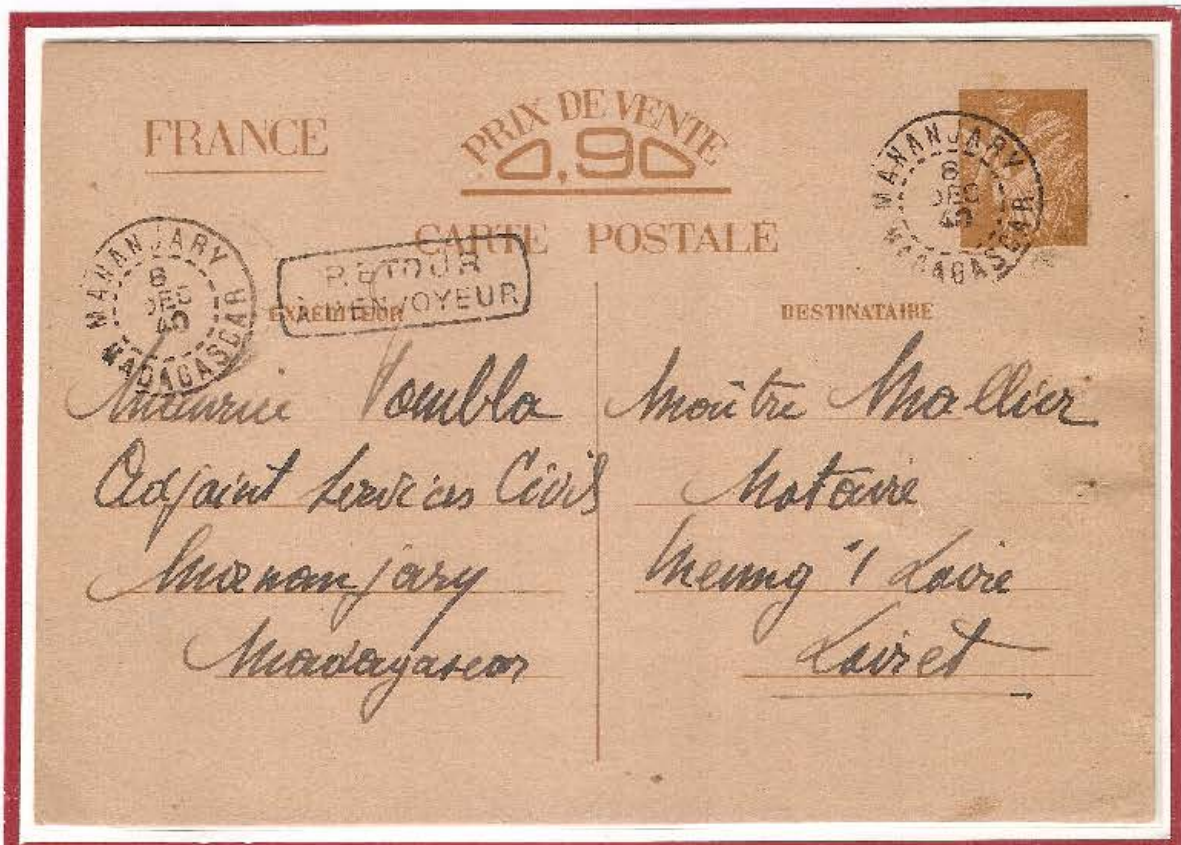 FRANCE
PRIX DE VENTE
0,90
CARTE POSTALE
MANANJARY
8
DEC
40
MADAGASCAR
MANANJARY
8
DEC
40
MADAGASCAR
RETOUR
À L'ENVOYEUR
EXPÉDITEUR
Maurice
Adjoint Services Civils
Mananjary
Madagascar
DESTINATAIRE
Maître Mallier
Notaire
Meung s/ Loire
Loiret